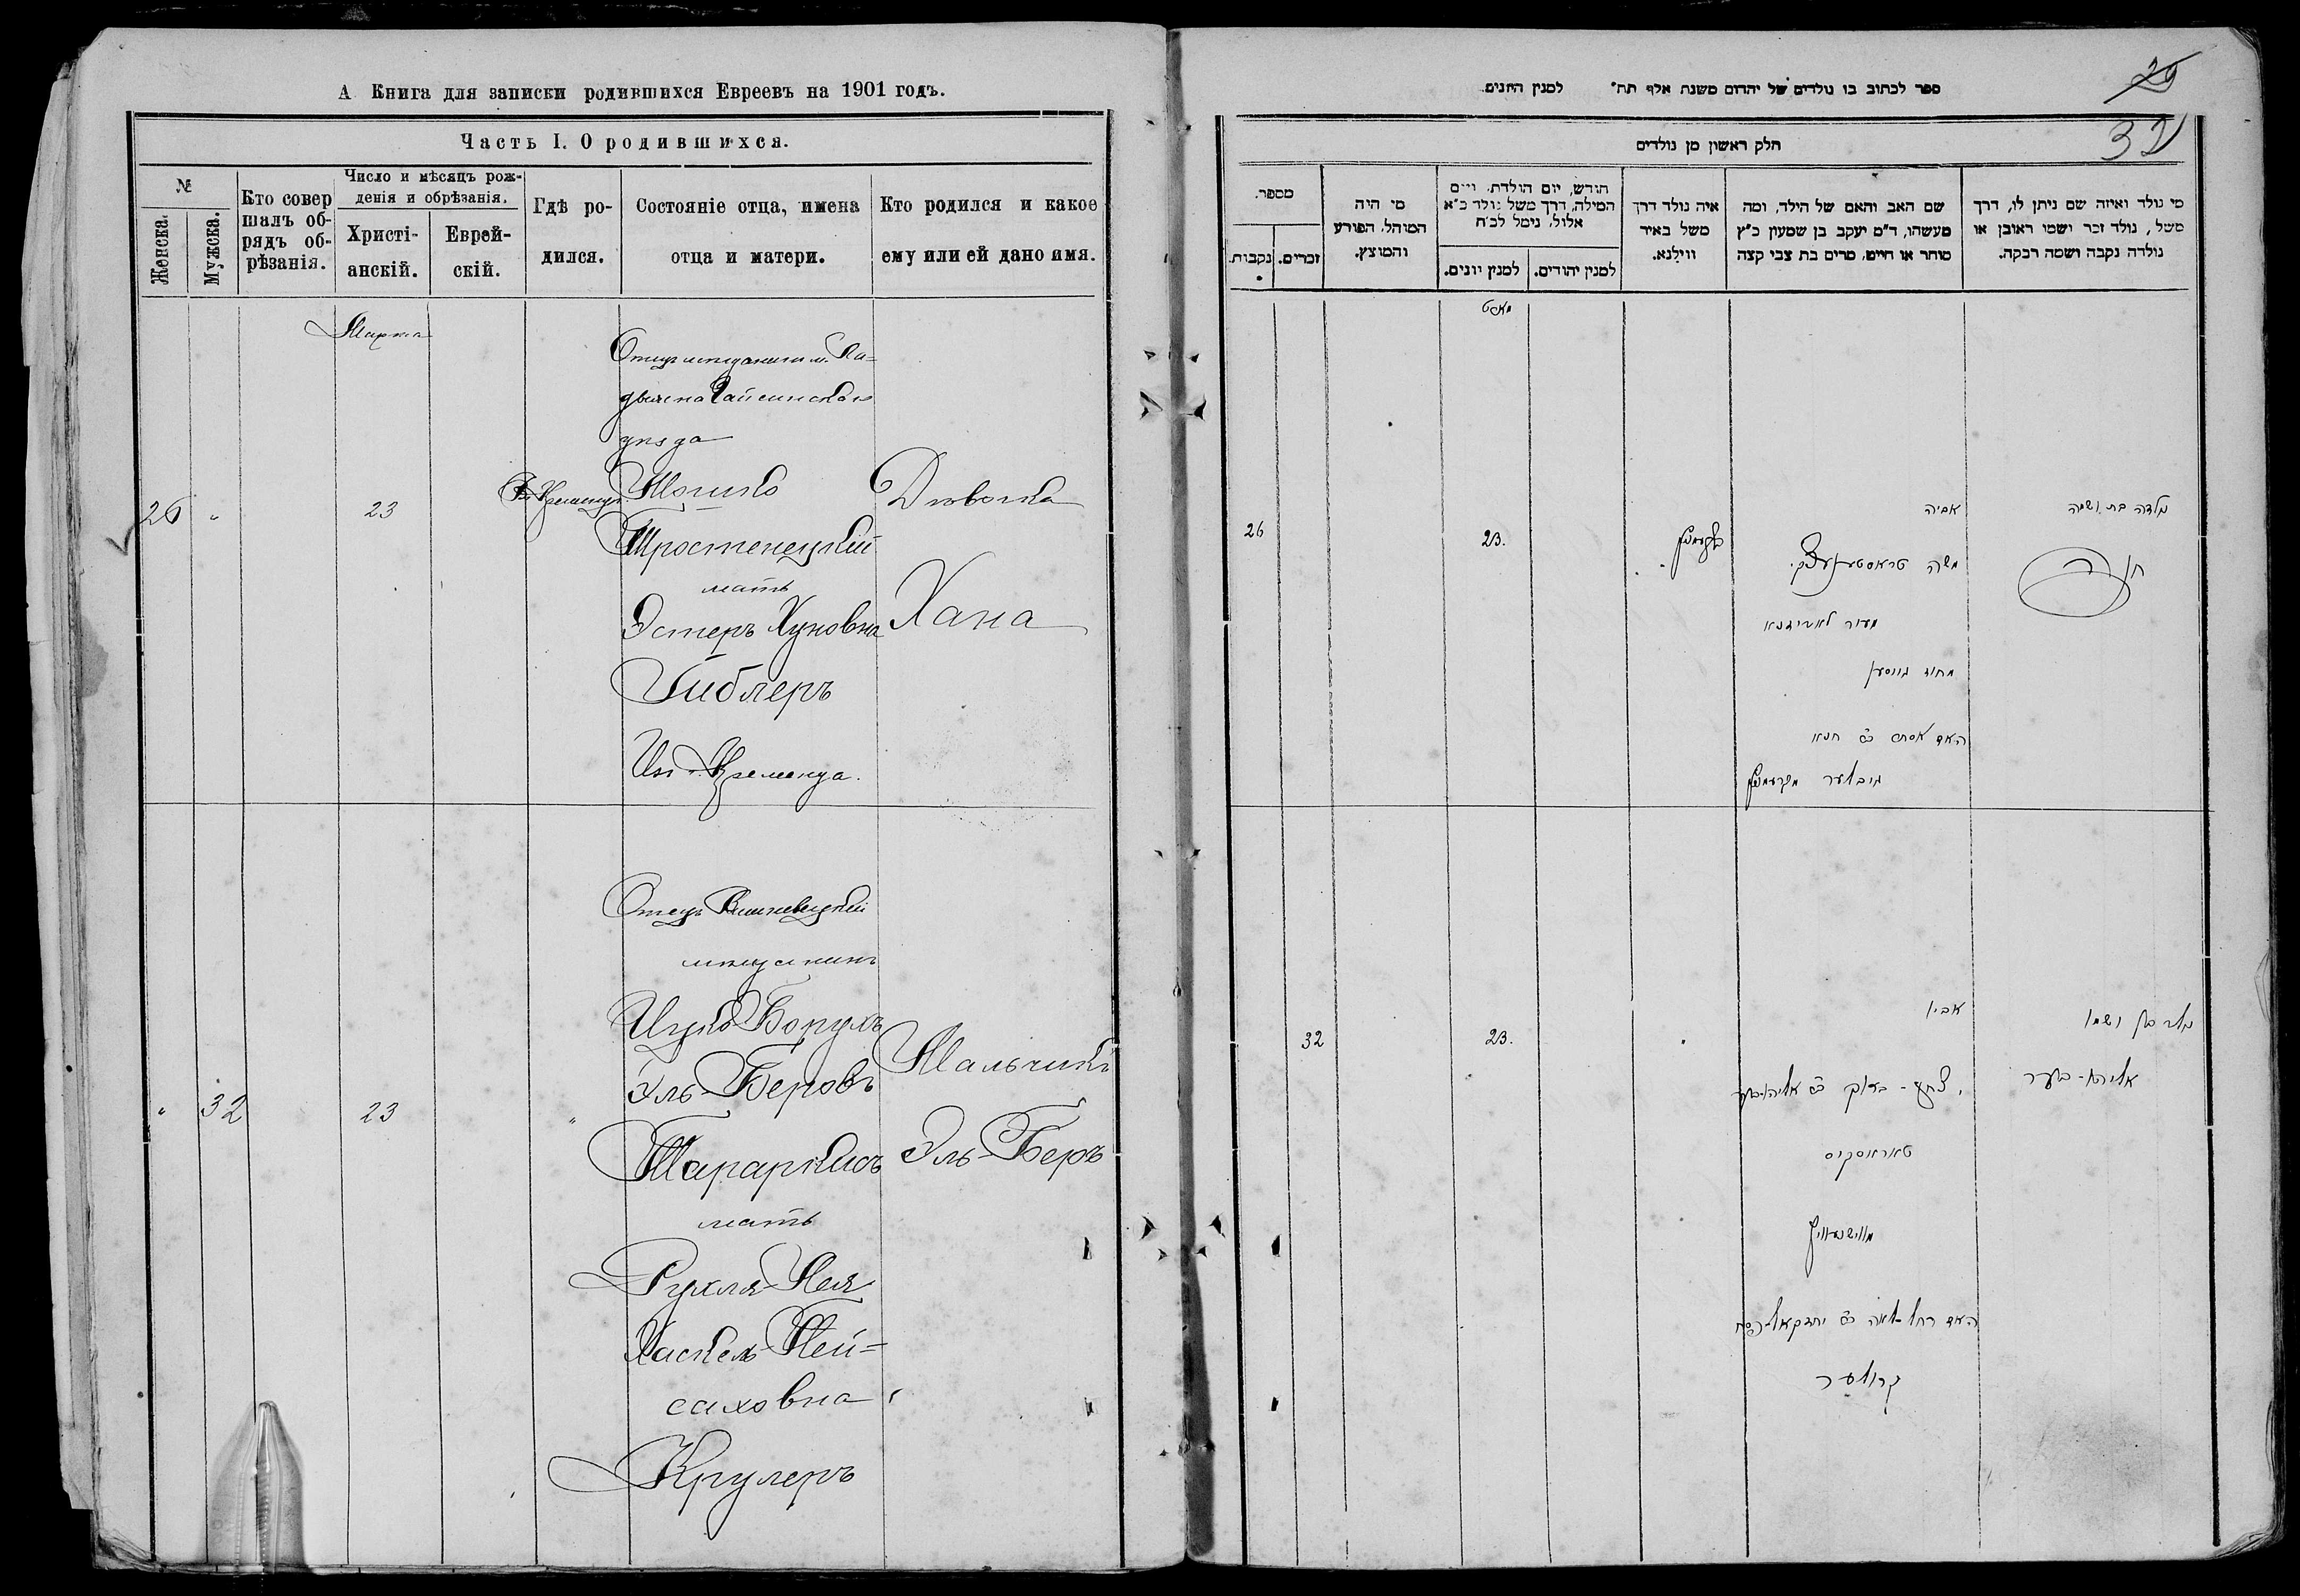 А Книга для записки родившихся Евреевъ на 1901 годъ.
Часть I. О родившихся.
№
Женска.
Мужска.
Кто совер
шалъ об-
рядъ об-
рѣзанія.
Число и мѣсяцъ рож-
денія и обрѣзанія.
Христі-
анскій.
Еврей-
скій.
Гдѣ ро-
дился.
Состояніе отца, имена
отца и матери.
Кто родился и какое
ему или ей дано имя.
Марта
26
"
23
Отецъ мѣщанинъ м. Ла-
дыжина Гайсинскаго
уѣзда
Мошко
Тростенецкій
мать
Эстеръ Хуновна
Гиблеръ
Изъ Кременца.
Дѣвочка
Хана
"
32
23
"
Отецъ Вишневецкій
мѣщанинъ
Ицко Борухъ
Эль-Беровъ
мать
Рухля-Лея
Хаскель Пей-
саховна
Крулеръ
Мальчикъ
Эль-Беръ
ספר לכתוב בו נולדים של יהדום משנת אלף תת״ למנין היונים.
29
32
חלק ראשון מן נולדים
מספר.
נקבות.
זכרים.
מי היה
המוהל, הפורע
והמוצץ.
חודש, יום הולדת, ויום
המילה, דרך משל נולד כ״א
אלול, נימל לכ״ח
למנין יונים.
למנין יהודים.
איה נולד דרך
משל באיר
ווילנא.
שם האב והאם של הילד, ומה
מעשהו, ד״מ יעקב בן שמעון כ״ץ
סוחר או חייט, מרים בת צבי קצה
מי נולד ואיזה שם ניתן לו, דרך
משל, נולד זכר ושמו ראובן או
נולדה נקבה ושמה רבקה.
26
23.
אביה
משה טראסטינעצקי
האם אסתר
גיבלער
נולדה בת ושמה
חנה
32
23.
אביו
האם רחל-לאה
קרולער
נולד בן ושמו
אליהו-בער